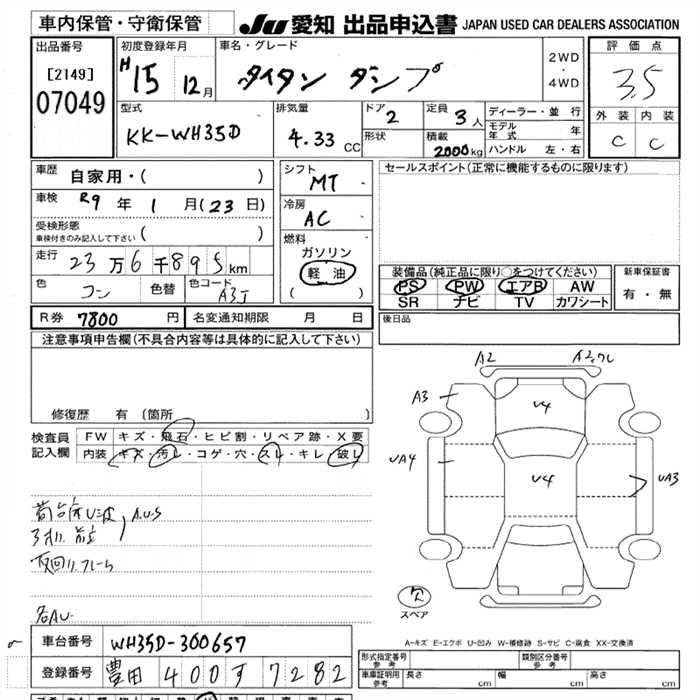 車内保管・守衛保管
JU 愛知 出品申込書 JAPAN USED CAR DEALERS ASSOCIATION
出品番号
[2149]
07049
初度登録年月
H15 12月
車名・グレード
タイタン ダンプ
2WD
・
4WD
評価点
3.5
外装 内装
C C
型式
KK-WH35D
排気量
4.33 CC
ドア 2
形状
定員 3人
積載 2000kg
ディーラー・並行
モデル年式 年
ハンドル 左・右
車歴
自家用・( )
車検 R9年 1月(23日)
受検形態
車検付きのみ記入して下さい ( )
走行 23万6千895km
色 コン
色替
色コード A3J
シフト
MT
冷房
AC
燃料
ガソリン
軽油
( )
セールスポイント(正常に機能するものに限ります)
装備品(純正品に限り○をつけてください)
PS PW エアB AW
SR ナビ TV カワシート
新車保証書
有・無
後日品
R券 7800円
名変通知期限 月 日
注意事項申告欄(不具合内容等は具体的に記入して下さい)
修復歴 有(箇所 )
検査員記入欄
FW キズ・飛石・ヒビ割・リペア跡・X要
内装 キズ・汚レ・コゲ・穴・スレ・キレ・破レ
荷台 U A.U.S
各AU
A2 A2.ワレ
A3
U4
UA4
U4
UA3
欠
スペア
A-キズ E-エクボ U-凹み W-補修跡 S-サビ C-腐食 XX-交換済
車台番号 WH35D-300657
登録番号 豊田 400す7282
形式指定番号 参考
類別区分番号 参考
車庫証明用参考 長さ cm 幅 cm 高さ cm